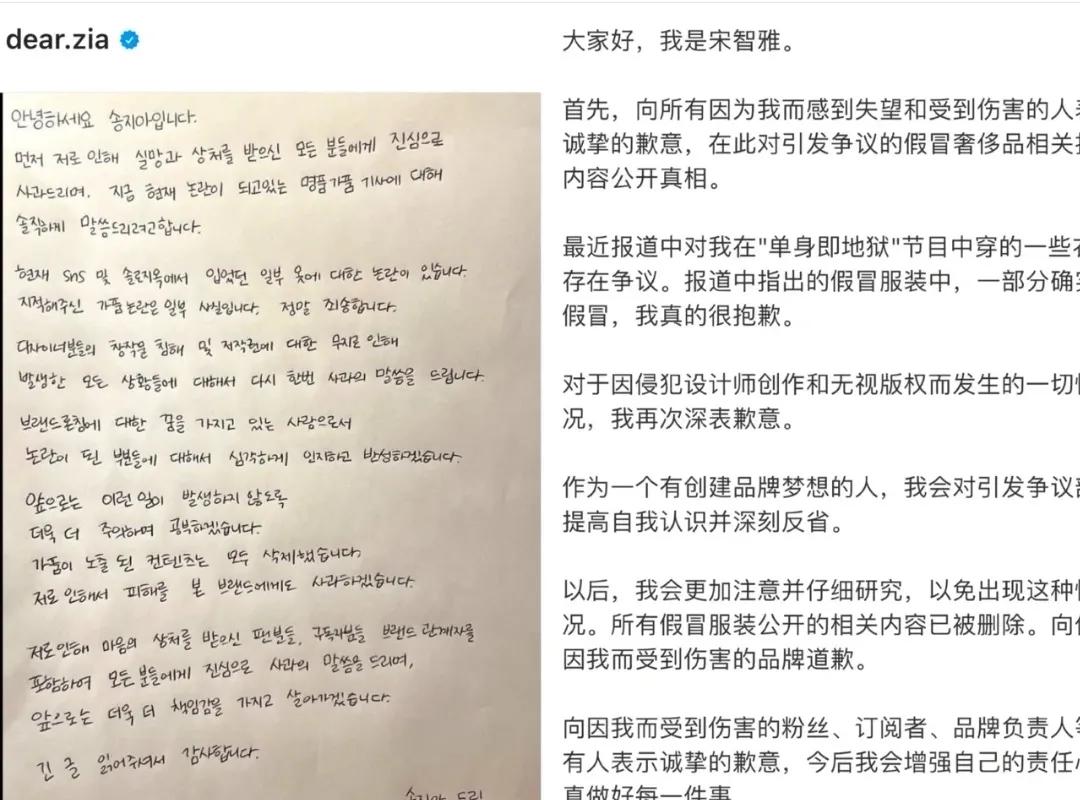 dear.zia
안녕하세요 송지아입니다.
먼저 저로 인해 실망과 상처를 받으신 모든 분들에게 진심으로
사과드리며. 지금 현재 논란이 되고있는 명품가품 기사에 대해
솔직하게 말씀드리려고합니다.
현재 SNS 및 솔로지옥에서 입었던 일부 옷에 대한 논란이 있습니다.
지적해주신 가품논란은 일부 사실입니다. 정말 죄송합니다.
디자이너분들의 창작물 침해 및 저작권에 대한 무지로 인해
발생한 모든 상황들에 대해서 다시 한번 사과의 말씀을 드립니다.
브랜드론칭에 대한 꿈을 가지고 있는 사람으로서
논란이 된 부분들에 대해서 심각하게 인지하고 반성하겠습니다.
앞으로는 이런 일이 발생하지 않도록
더욱 더 주의하며 공부하겠습니다.
가품이 노출 된 컨텐츠는 모두 삭제했습니다.
저로 인해서 피해를 본 브랜드에게도 사과하겠습니다.
저로인해 마음의 상처를 받으신 팬분들, 구독자분들 브랜드 관계자를
포함하여 모든 분들에게 진심으로 사과의 말씀을 드리며,
앞으로는 더욱 더 책임감을 가지고 살아가겠습니다.
긴 글 읽어주셔서 감사합니다.
송지아 드림
大家好，我是宋智雅。
首先，向所有因为我而感到失望和受到伤害的人表
诚挚的歉意，在此对引发争议的假冒奢侈品相关
内容公开真相。
最近报道中对我在"单身即地狱"节目中穿的一些衣
存在争议。报道中指出的假冒服装中，一部分确实
假冒，我真的很抱歉。
对于因侵犯设计师创作和无视版权而发生的一切情
况，我再次深表歉意。
作为一个有创建品牌梦想的人，我会对引发争议部
提高自我认识并深刻反省。
以后，我会更加注意并仔细研究，以免出现这种情
况。所有假冒服装公开的相关内容已被删除。向
因我而受到伤害的品牌道歉。
向因我而受到伤害的粉丝、订阅者、品牌负责人等
有人表示诚挚的歉意，今后我会增强自己的责任心
真做好每一件事